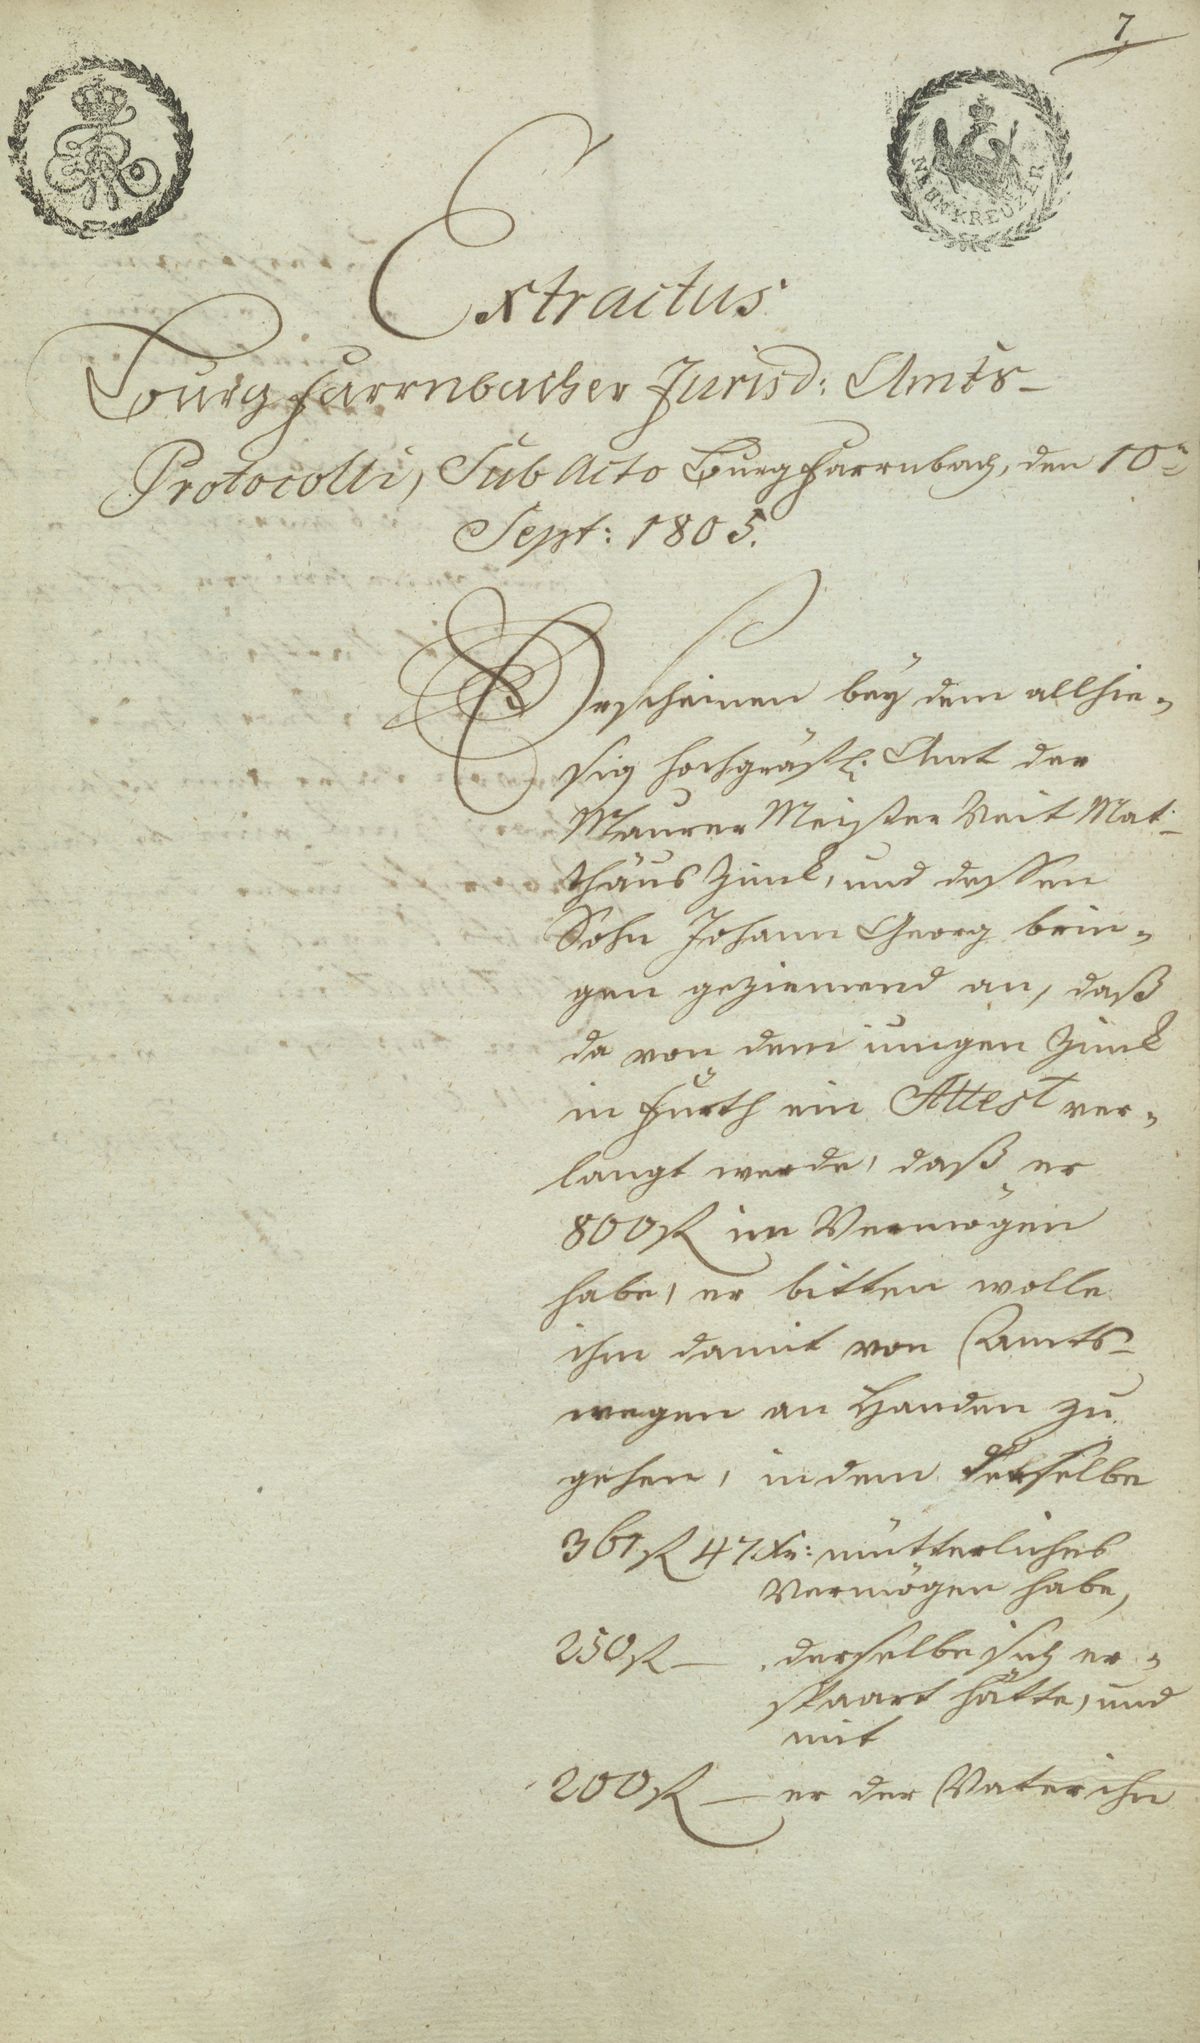 7.
NEUNKREUZER
Extractus
Burgfarrnbacher Jurisd: Amts-
Protocolli, Sub Acto Burgfarrnbach, den 10n
Sept: 1805.
Erscheinen beÿ dem allhie-
sig hochgräfl: Amt der
Maurer Meister Veit Mat-
thäus Zink, und dessen
Sohn Johann Georg brin-
gen geziemend an, daß
da von dem iungen Zink
in Fürth ein Attest ver-
langt werde, daß er
800 fl im Vermögen
habe, er bitten wolle
ihm damit von Amts-
wegen an Handen zu
gehen, indem derselbe
361 fl 47 Xr: mütterliches
Vermögen habe,
250 fl — derselbe sich er-
spaart hätte, und
mit
200 fl — er der Vater ihn